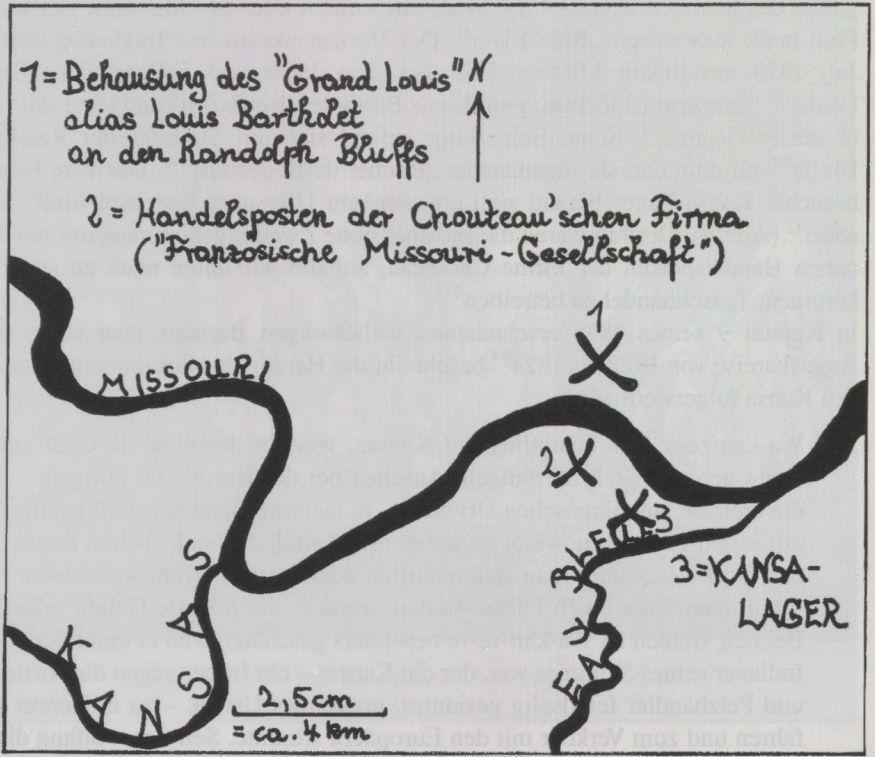 1 = Behausung des "Grand Louis"
alias Louis Bartholet
an den Randolph Bluffs
N
2 = Handelsposten der Chouteau'schen Firma
("Französische Missouri-Gesellschaft")
1
MISSOURI
2
3
3 = KANSA-
LAGER
KANSAS
2,5cm
= ca. 4 km